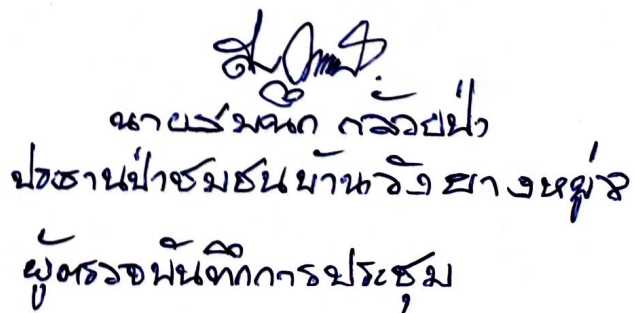 นายสมนึก กล้วยป่า
ประธานป่าชุมชนบ้านวังยางหมู่ 8
ผู้ตรวจบันทึกการประชุม